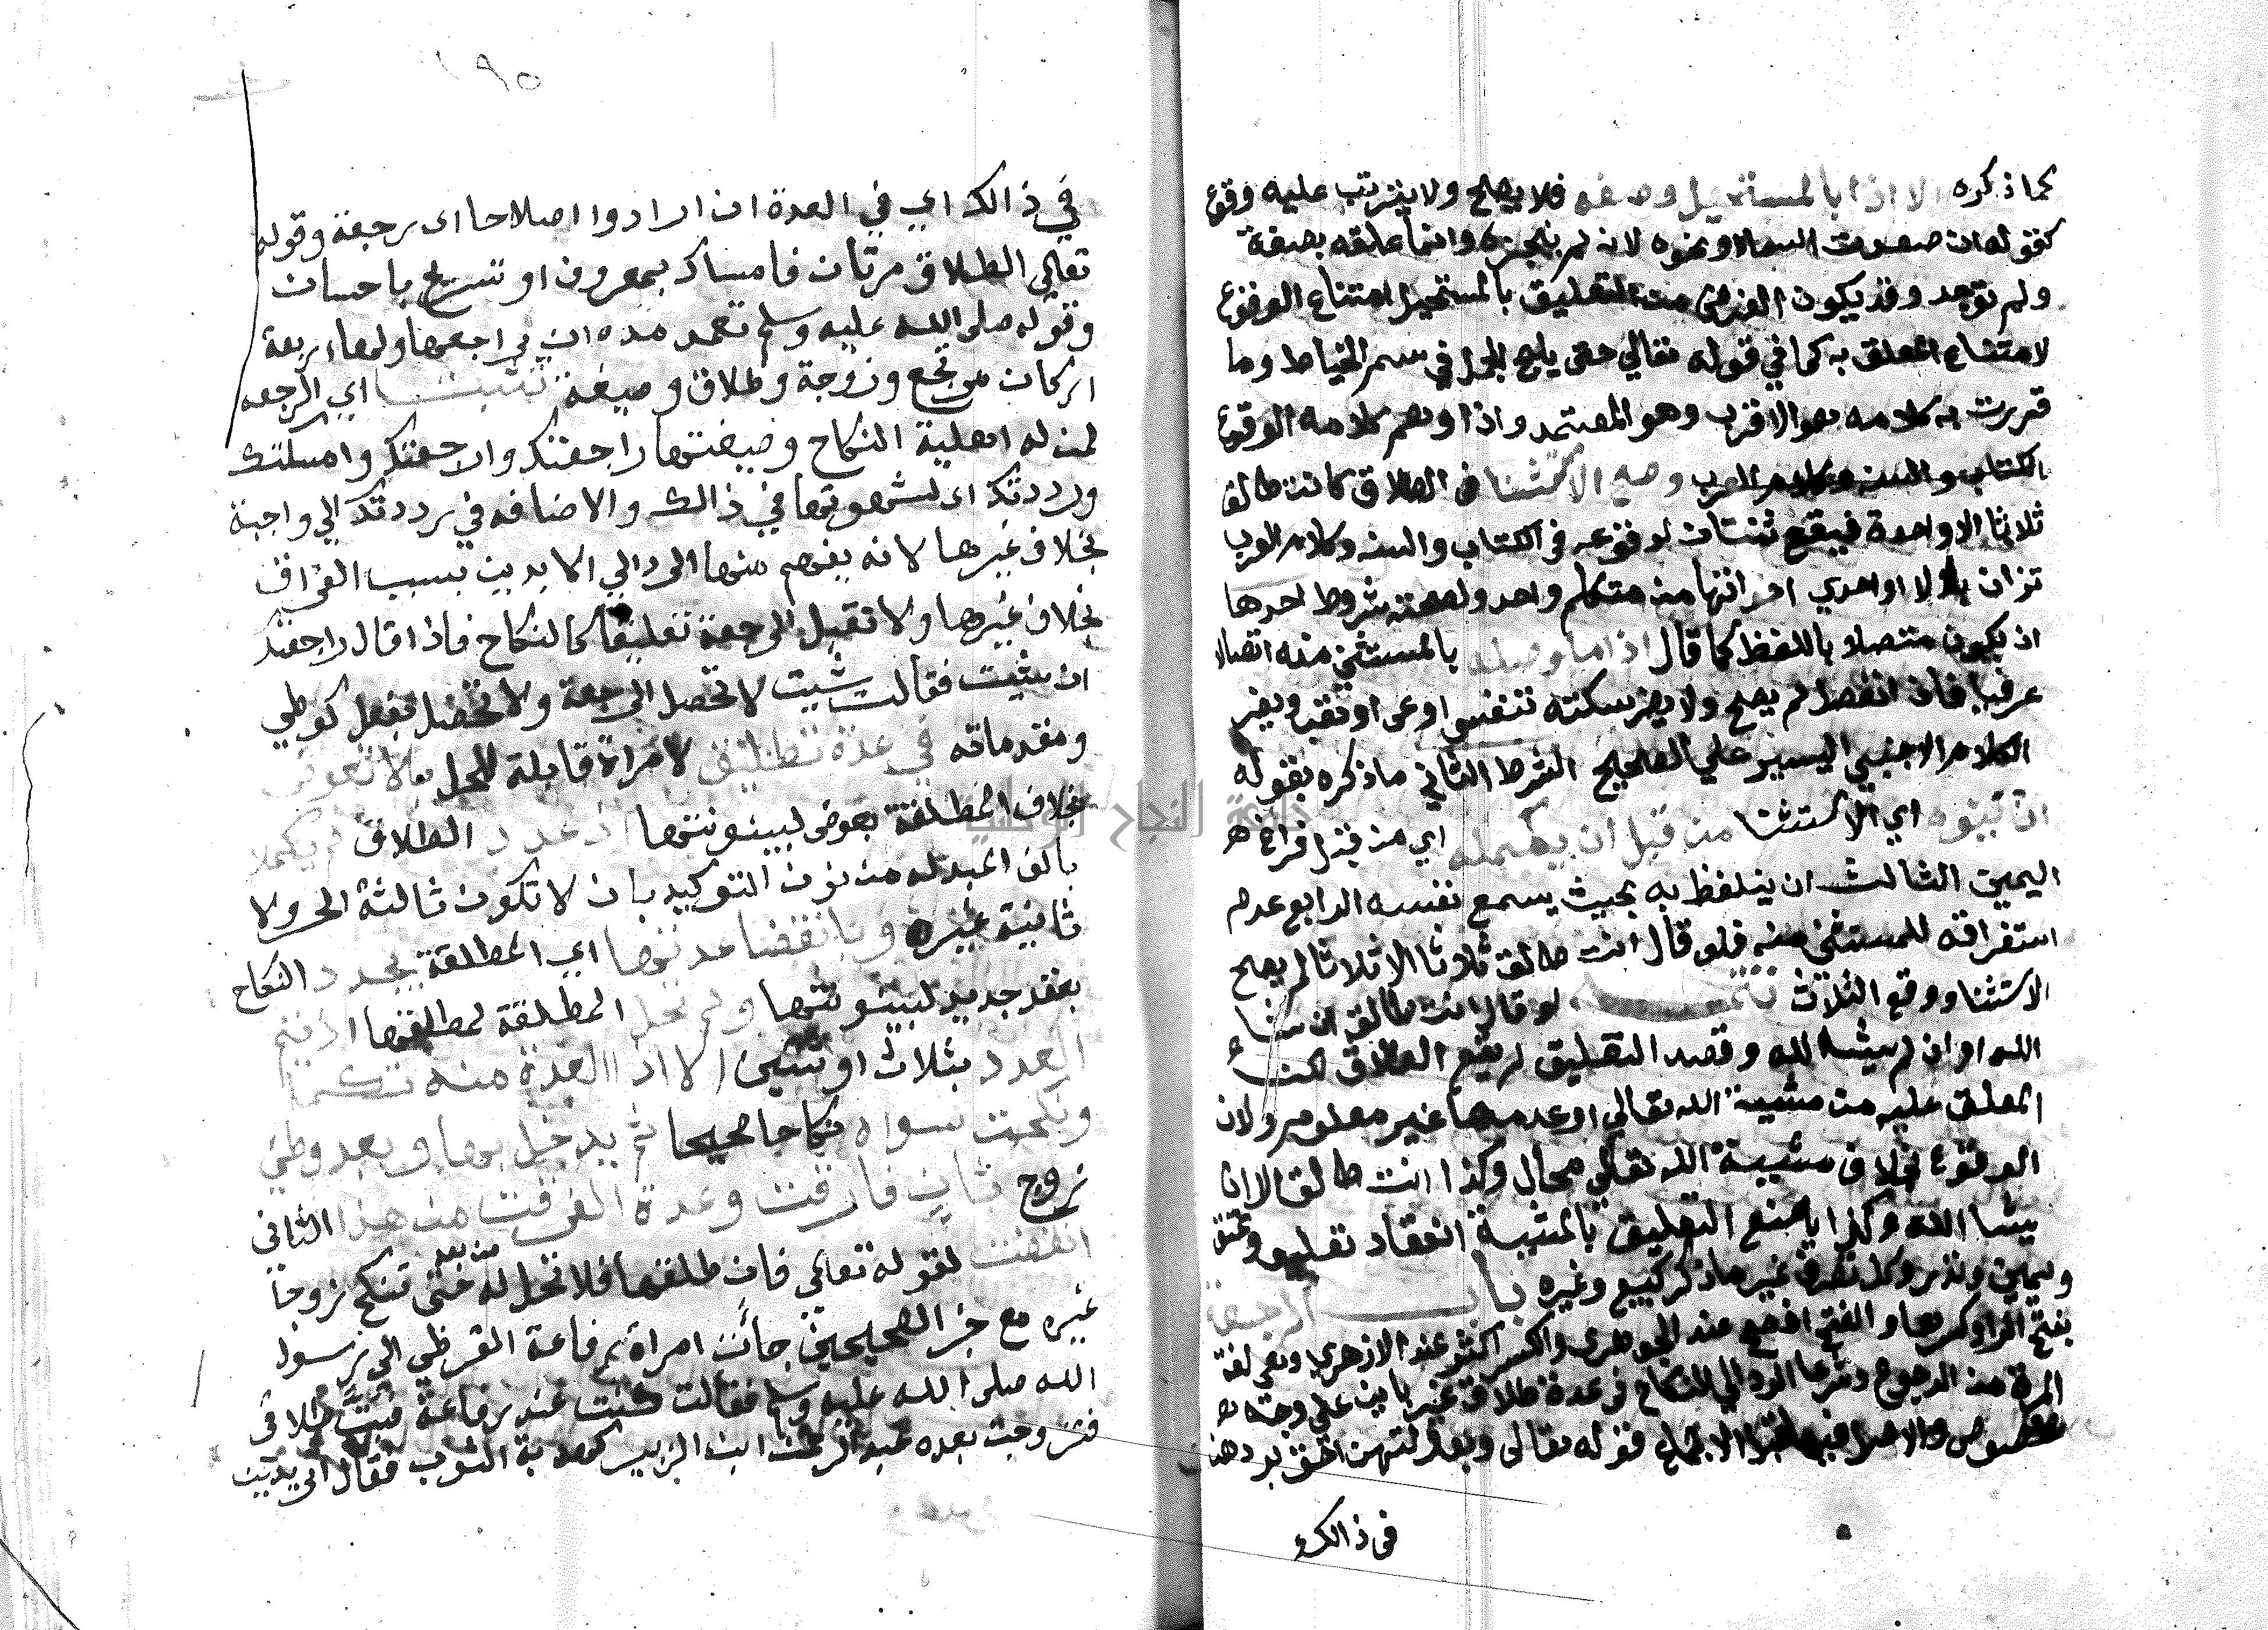 كما ذكره الا اذا بالمستحيل وصفه فلا يصح ولا يترتب عليه وقوع
كقوله ان صعدت السماء ونحوه لانه لم ينجزه وانما علقه بصفة
ولم توجد وقد يكون الغرض من التعليق بالمستحيل امتناع الوقوع
لامتناع المعلق به كما في قوله تعالي حتى يلج الجمل في سم الخياط وما
قررت به كلامه هو الاقرب وهو المعتمد واذا وهم كلامه الوقوع
الكتاب والسنه وكلام العرب وصح الاستثنا في الطلاق كانت طالق
ثلاثا الا واحدة فيقع ثنتان لوقوعه في الكتاب والسنه وكلام العرب
ان يكون متصلا باللفظ كما قال اذا ما وصله بالمستثنى منه اتصالا
عرفيا فان انفصل لم يصح ولا يضر سكتة تنفس او عي او تعب ويضر
الكلام الاجنبي اليسير علي الصحيح الشرط الثاني ما ذكره بقوله
ان ينوه اي الاستثنا من قبل ان يكمله اي من قبل فراغ
اليمين الثالث ان يتلفظ به بحيث يسمع نفسه الرابع عدم
استغراقه للمستثنى منه فلو قال انت طالق ثلاثا الا ثلاثا لم يصح
الاستثنا ووقع الثلاث تتمه لو قال انت طالق ان شاء
الله او ان لم يشا الله وقصد التعليق لم يقع الطلاق لان
المعلق عليه من مشية الله تعالي او عدمها غير معلوم ولان
الوقوع بخلاف مشيية الله تعالي محال وكذا انت طالق الا ان
يشا الله وكذا يمنع التعليق بالمشية انعقاد تعليق وعتق
ويمين ونذر وكل تصرف غير ما ذكر كبيع وغيره باب الرجعة
بفتح الرا وكسرها والفتح افصح عند الجوهري والكسر اكثر عند الازهري وهي لغة
المرة من الرجوع وشرعا الرد الي النكاح في عدة طلاق غير باين علي وجه
مخصوص والاصل فيها قبل الاجماع قوله تعالى وبعولتهن احق بردهن
في ذالك
١٩٥
في ذالك اي في العدة ان ارادوا اصلاحا اي رجعة وقوله
تعالي الطلاق مرتان فامساك بمعروف او تسريح باحسان
وقوله صلى الله عليه وسلم لعمر مره ان يراجعها ولها اربعة
اركان مرتجع وزوجة وطلاق وصيغة تثبت اي الرجعه
لمن له اهلية النكاح وصيغتها راجعتك وارجعتك وامسكتك
ورددتك اي لشهرتها في ذالك والاضافه في رددتك الي واجبة
بخلاف غيرها لانه يفهم منها الرد الي الابوين بسبب الفراق
بخلاف غيرها ولا تقبل الرجعة تعليقا كالنكاح فاذا قال راجعتك
ان شيت فقالت شيت لا تحصل الرجعة ولا تحصل بفعل كوطي
ومقدماته في عدة تطليق لامراة قابلة للحل بلا تعوض
بخلاف المطلقة بعوض لبينونتها اذ عدد الطلاق لم يكملا
بالف المبدله من نون التوكيد بان لا تكون ثالثة الحر ولا
ثانية غيره وبانقضا عدتها اي المطلقة يجدد النكاح
بعقد جديد لبينونتها ولم تحل المطلقة لمطلقها اذ يتم
العدد بثلاث او ثنتين الا اذ العدة منه تكملا
ونكحت سواه نكاحا صحيحا ثم يدخل بها وبعد وطي
زوج ثان فارقت وعدة الفرقت من هذا الثاني
انقضت لقوله تعالي فان طلقها فلا تحل له من بعد حتى تنكح زوجا
غيره مع خبر الصحيحين جائت امراة رفاعة القرظي الي رسول
الله صلى الله عليه وسلم فقالت كنت عند رفاعة فبت طلاقي
فتزوجت بعده عبد الرحمن ابن الزبير كهدبة الثوب فقال اتريدين
جامعة النجاح الوطنية